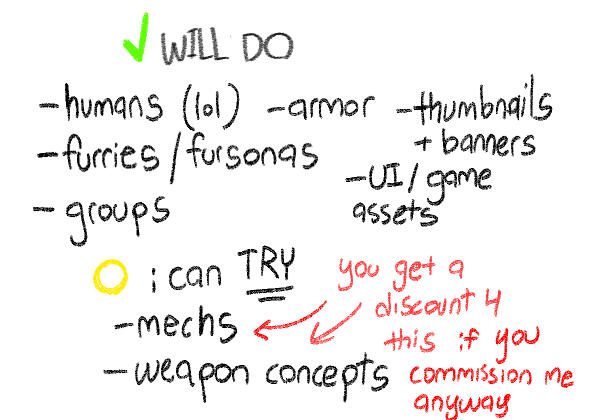 WILL DO
-humans (lol) -armor -thumbnails
+ banners
-furries/fursonas
-UI/game
assets
-groups
i can TRY
-mechs
-weapon concepts
you get a
discount 4
this if you
commission me
anyway